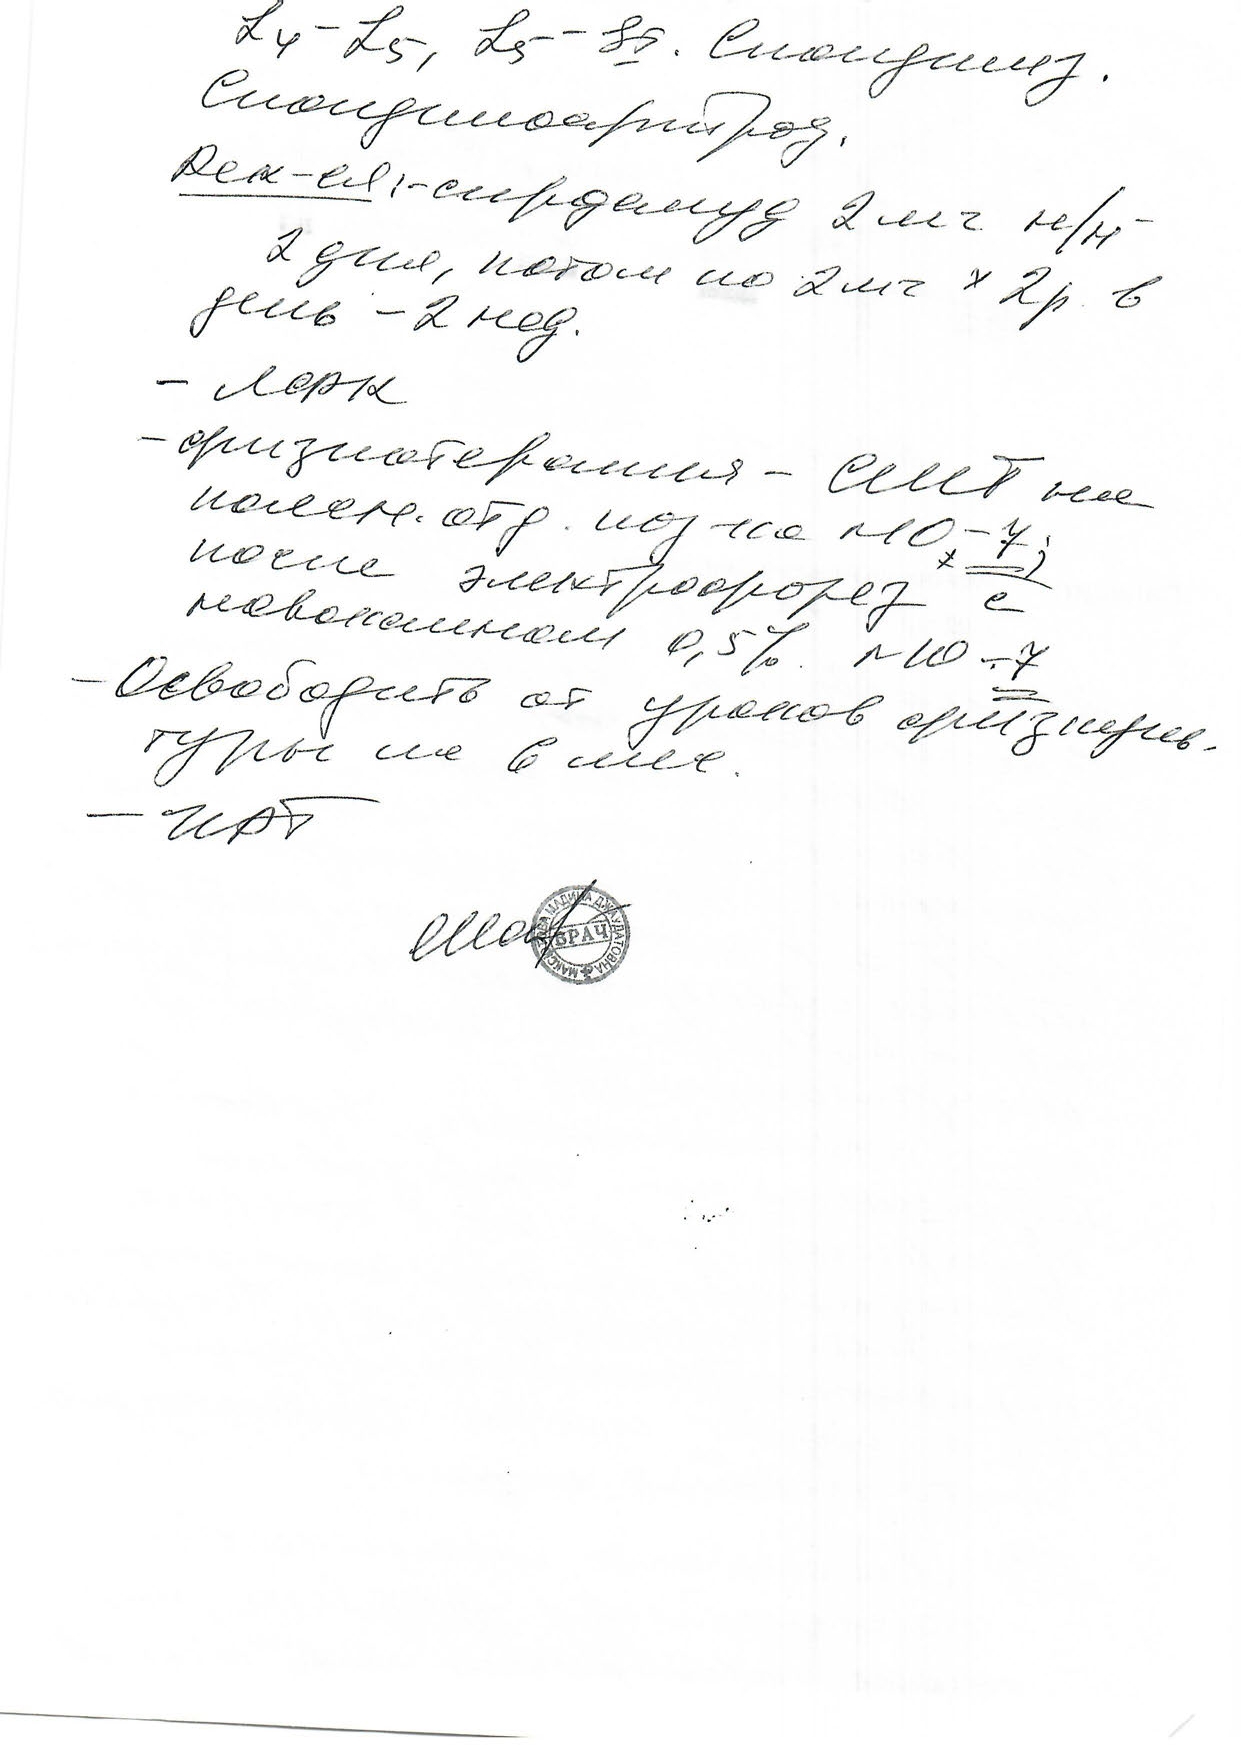 L4-L5, L5-S1. Спондилез.
Спондилоартроз.
Рек-ся: - сирдалуд 2 мг н/н -
2 дня, потом по 2 мг x 2 р. в
день - 2 нед.
- ЛФК
- физиотерапия - СМТ на
поясн. отд. поз-ка N10-7;
после электрофорез x с
новокаином 0,5% N10-7
- Освободить от уроков физкуль-
туры на 6 мес.
- ИРТ
ВРАЧ
МАДИНА ДЖАУДАТОВНА